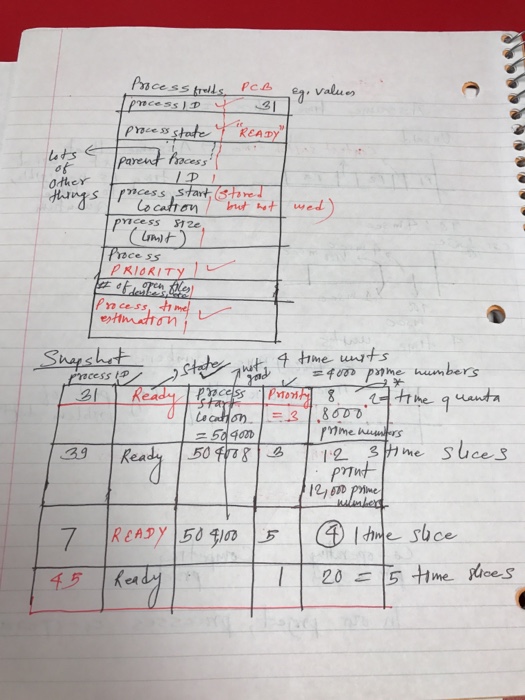 Process fields PCB eg. values
process ID 31
process state "READY"
Lots of other things
parent Process ID
process start location (stored but not used)
process size (Limit)
Process PRIORITY
# of open files
Process time estimation
Snapshot
process ID State not good 4 time units
= 4000 prime numbers
31 Ready process start location = 504000 Priority = 3 8 8000 prime numbers 2 = time quanta
39 Ready 504008 3 12 print 12,000 prime numbers 3 time slices
7 READY 504100 5 4 1 time slice
45 Ready 1 20 = 5 time slices